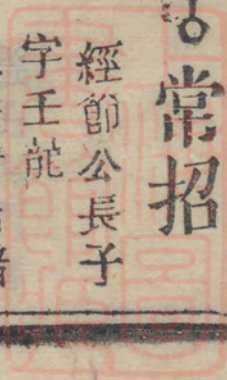 常招
經節公長子
字壬龍